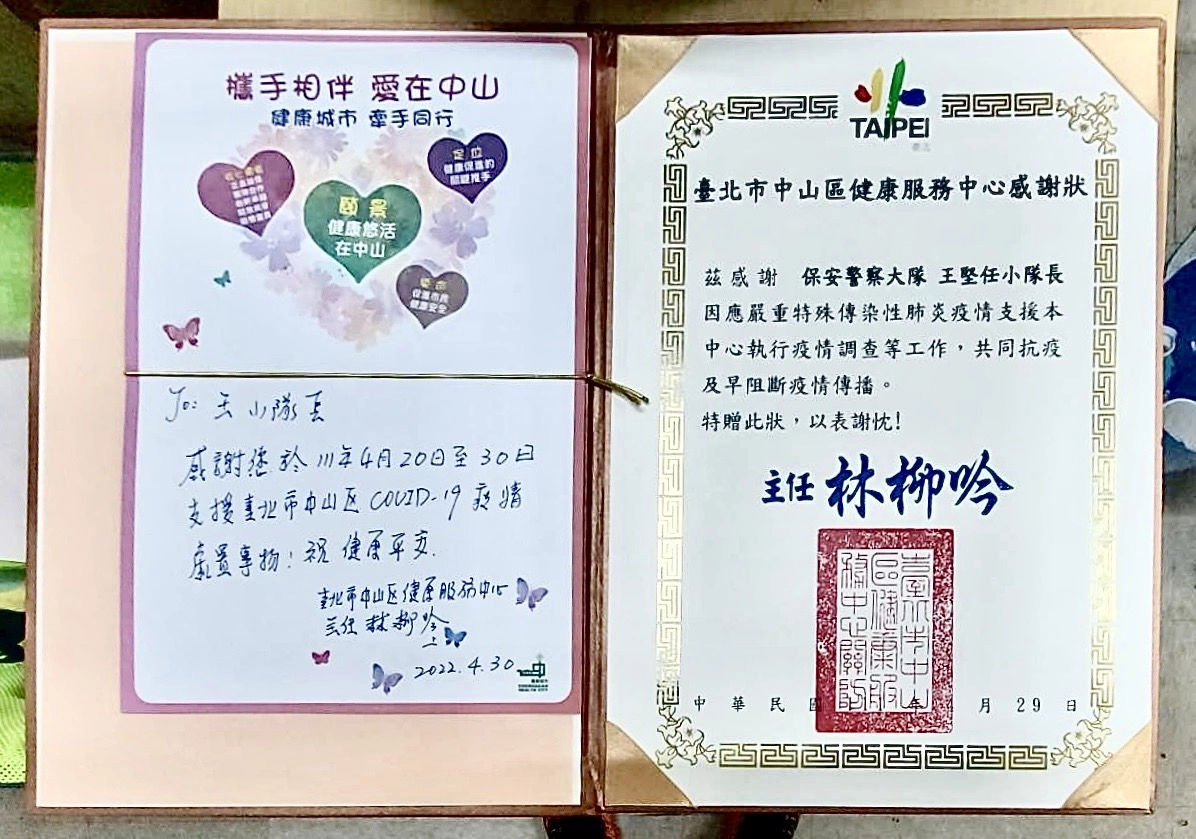 攜手相伴 愛在中山
健康城市 牽手同行
定位
健康促進的
關鍵推手
願景
健康悠活
在中山
使命
促進市民
健康安全
To: 王小隊長
感謝您於111年4月20日至30日
支援臺北市中山区COVID-19疫情
處置事物! 祝 健康平安.
臺北市中山区健康服務中心
主任 林柳吟
上
2022.4.30
TAIPEI
臺北
臺北市中山區健康服務中心感謝狀
茲感謝 保安警察大隊 王堅任小隊長
因應嚴重特殊傳染性肺炎疫情支援本
中心執行疫情調查等工作，共同抗疫
及早阻斷疫情傳播。
特贈此狀，以表謝忱!
主任 林柳吟
臺北市中山
區健康服
務中心關防
中華民國 年4月29日